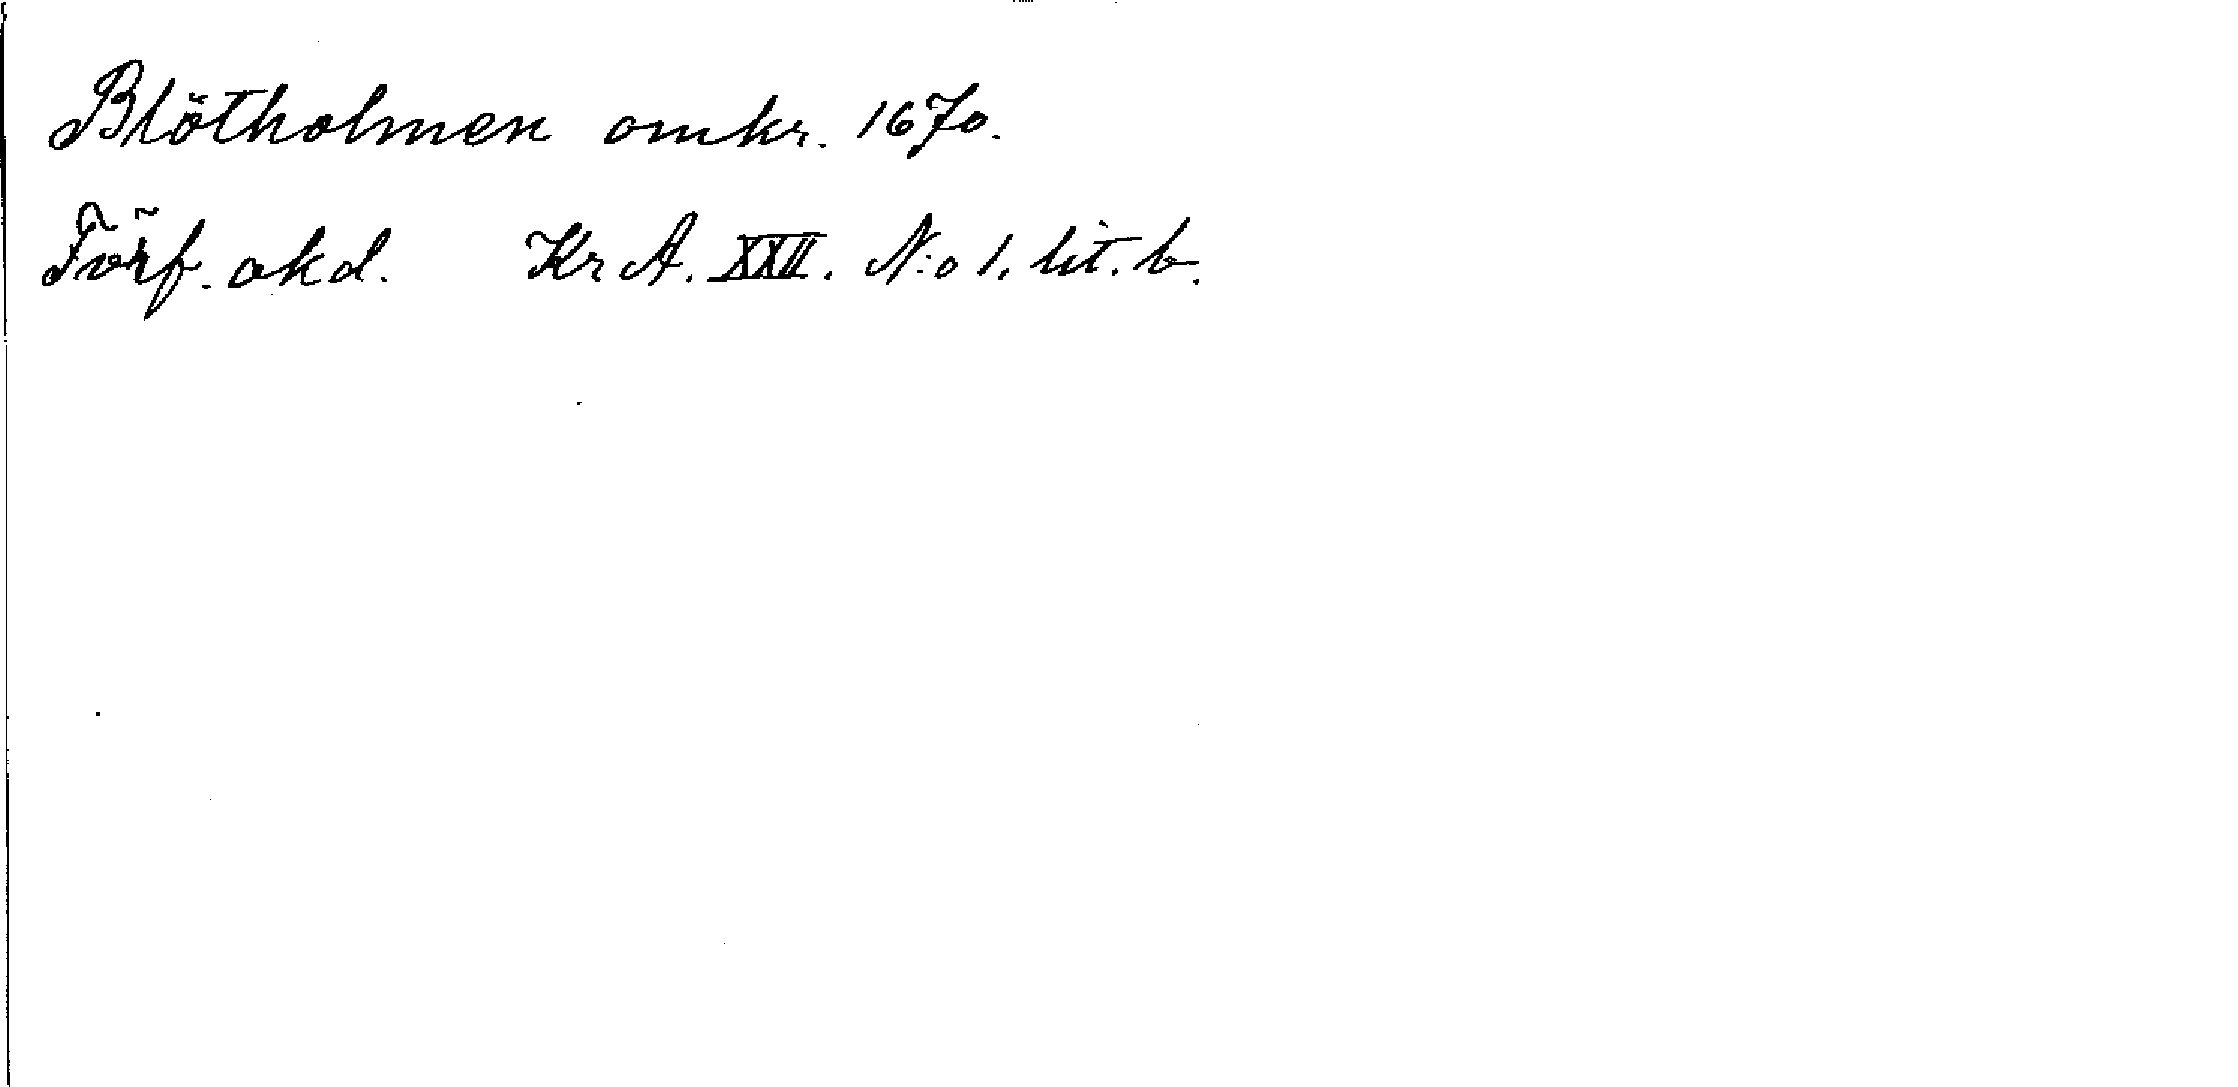 Blötholmen omkr. 1670.
Förf. okd. Kr A. XXII. N:o 1. lit. b.